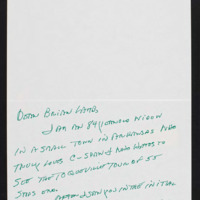 Dear Brian Lamb,
I am an 84 year old widow
in a small town in Arkansas who
truly loves C-Span & who wants to
see the Tocqueville tour of 55
stops end.
in the initial